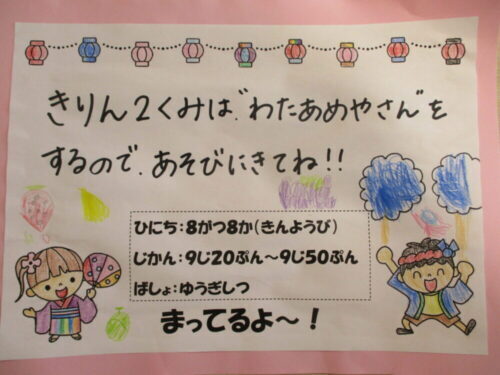 きりん2くみは"わたあめやさん"を
するので、あそびにきてね!!
ひにち:8がつ8か(きんようび)
じかん:9じ20ぷん~9じ50ぷん
ばしょ:ゆうぎしつ
まってるよ~!